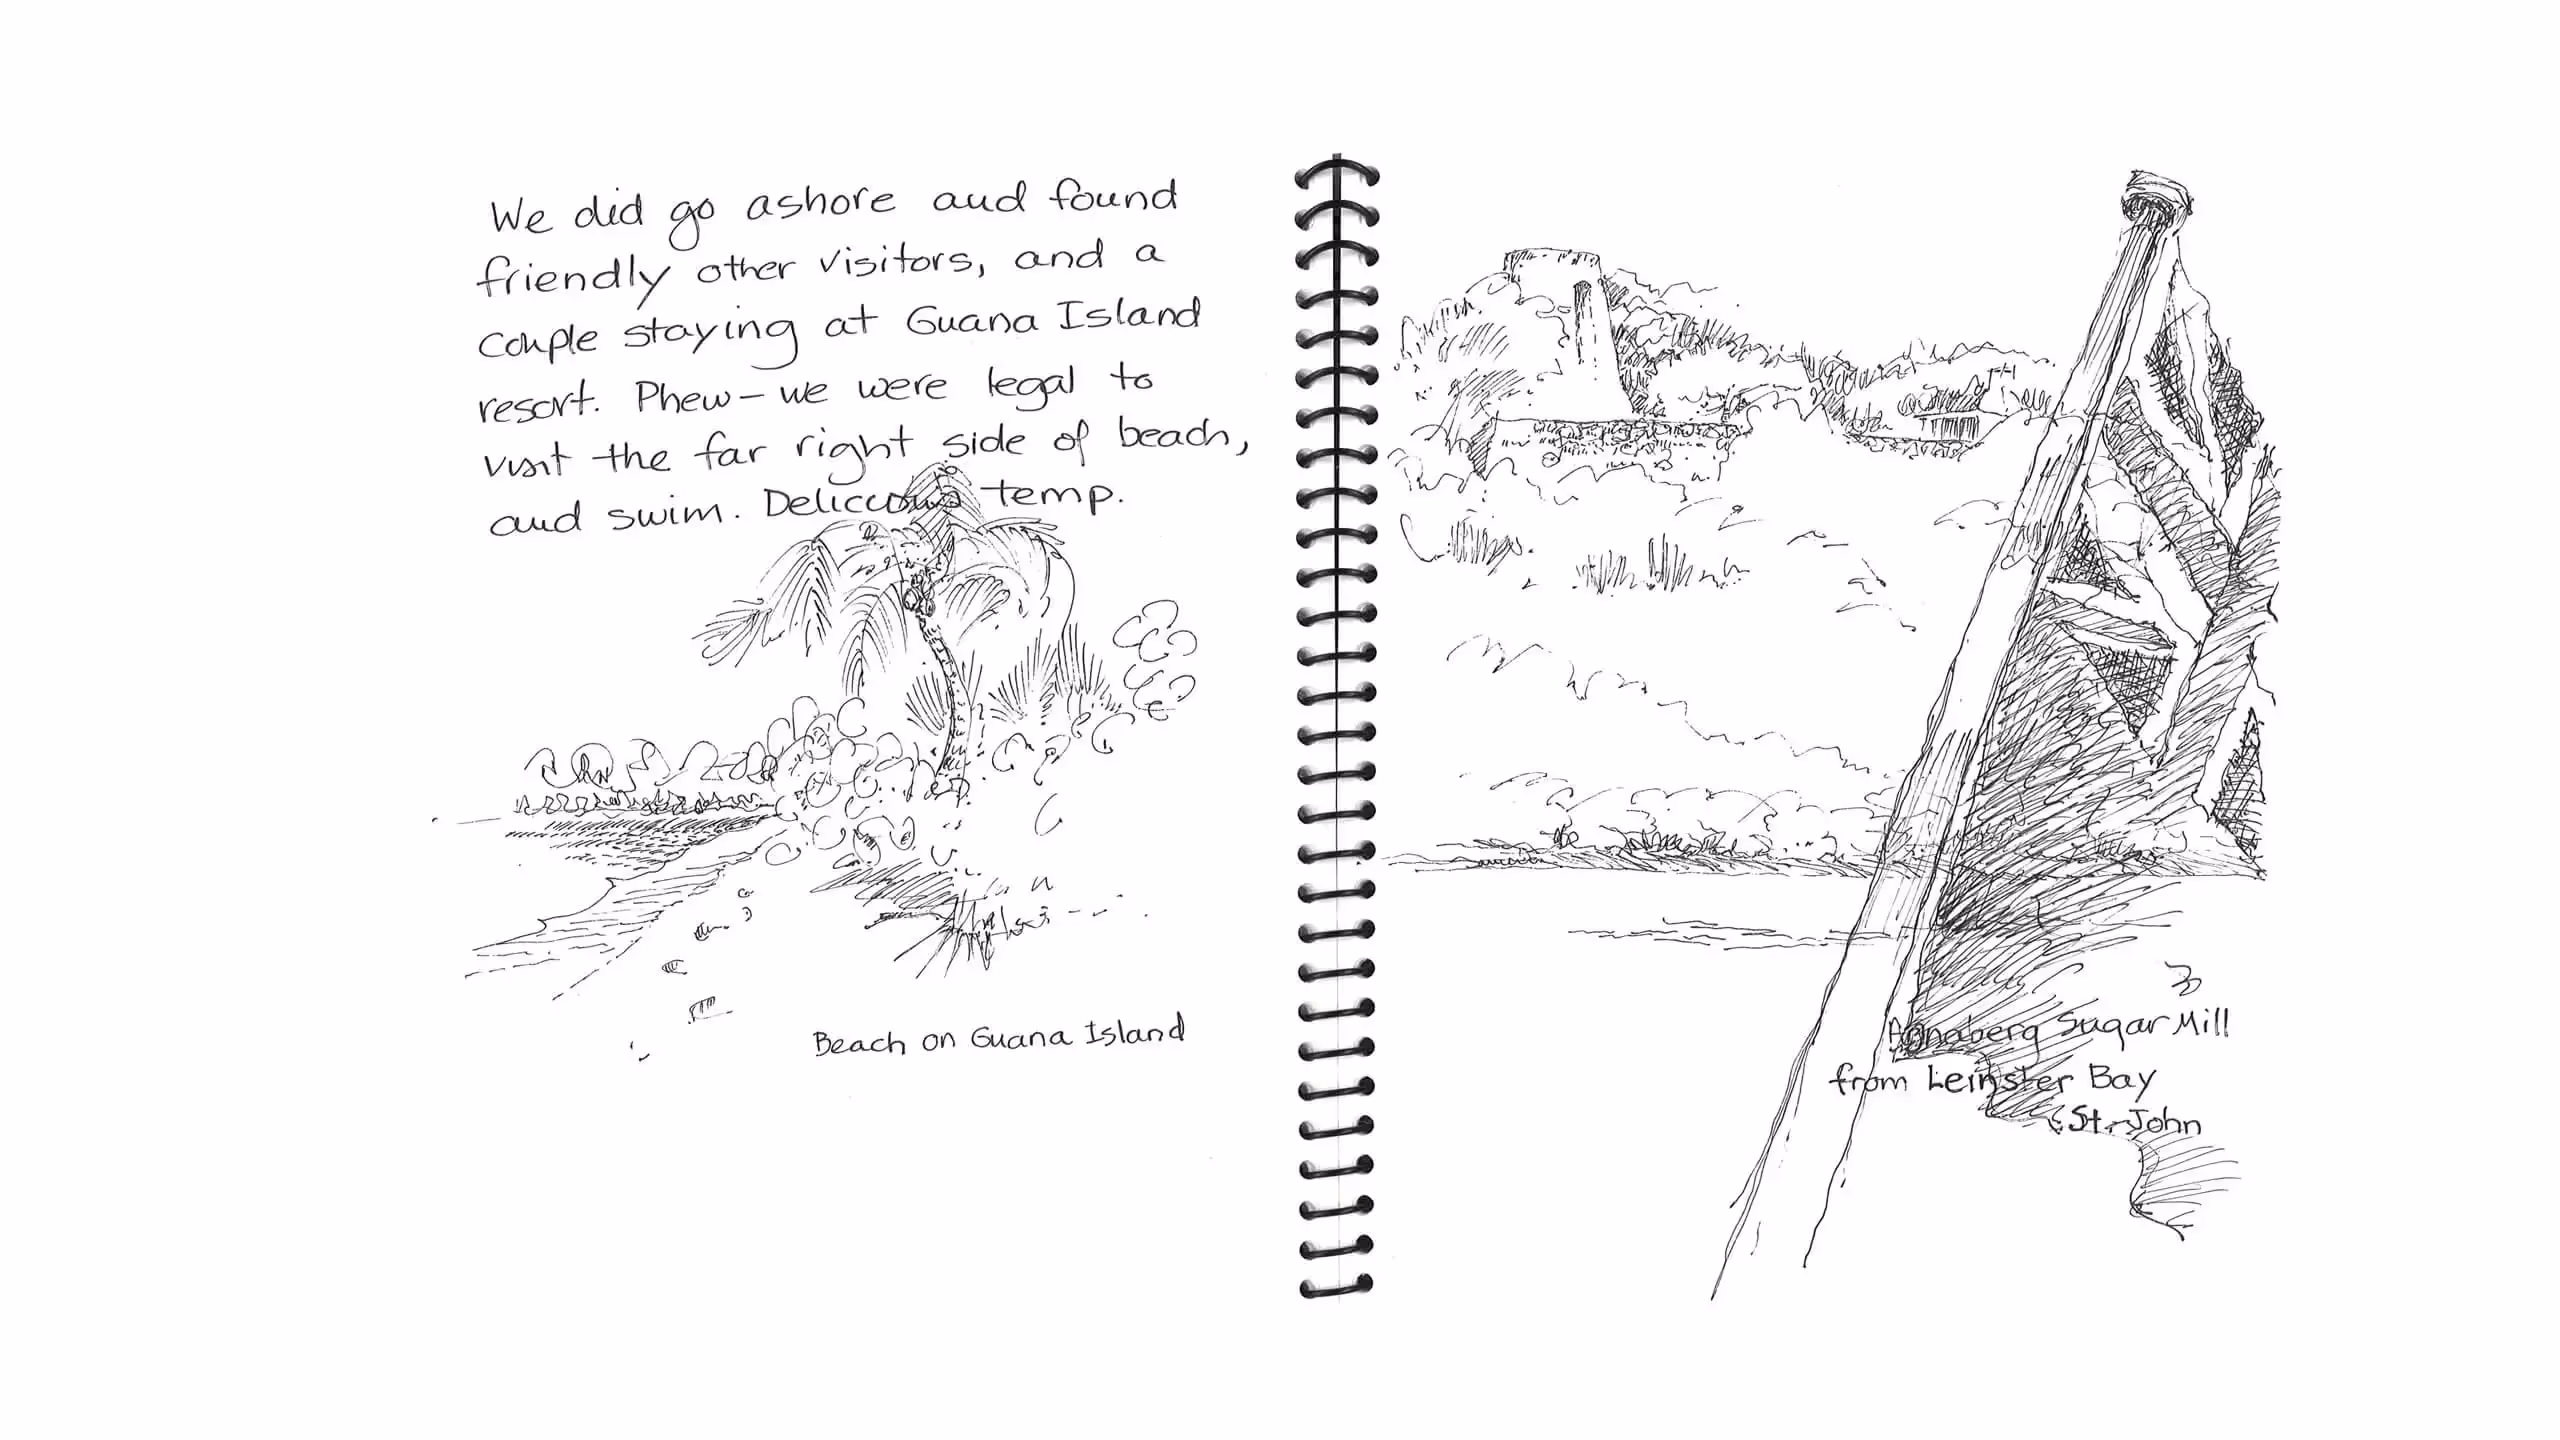 We did go ashore and found
friendly other visitors, and a
couple staying at Guana Island
resort. Phew - we were legal to
visit the far right side of beach,
and swim. Deliccous temp.
Beach on Guana Island
Annaberg Sugar Mill
from Leinster Bay
St. John